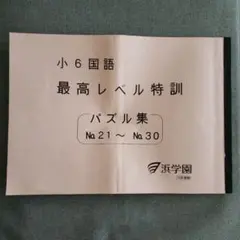 小6国語
最高レベル特訓
パズル集
№21～№30
浜学園